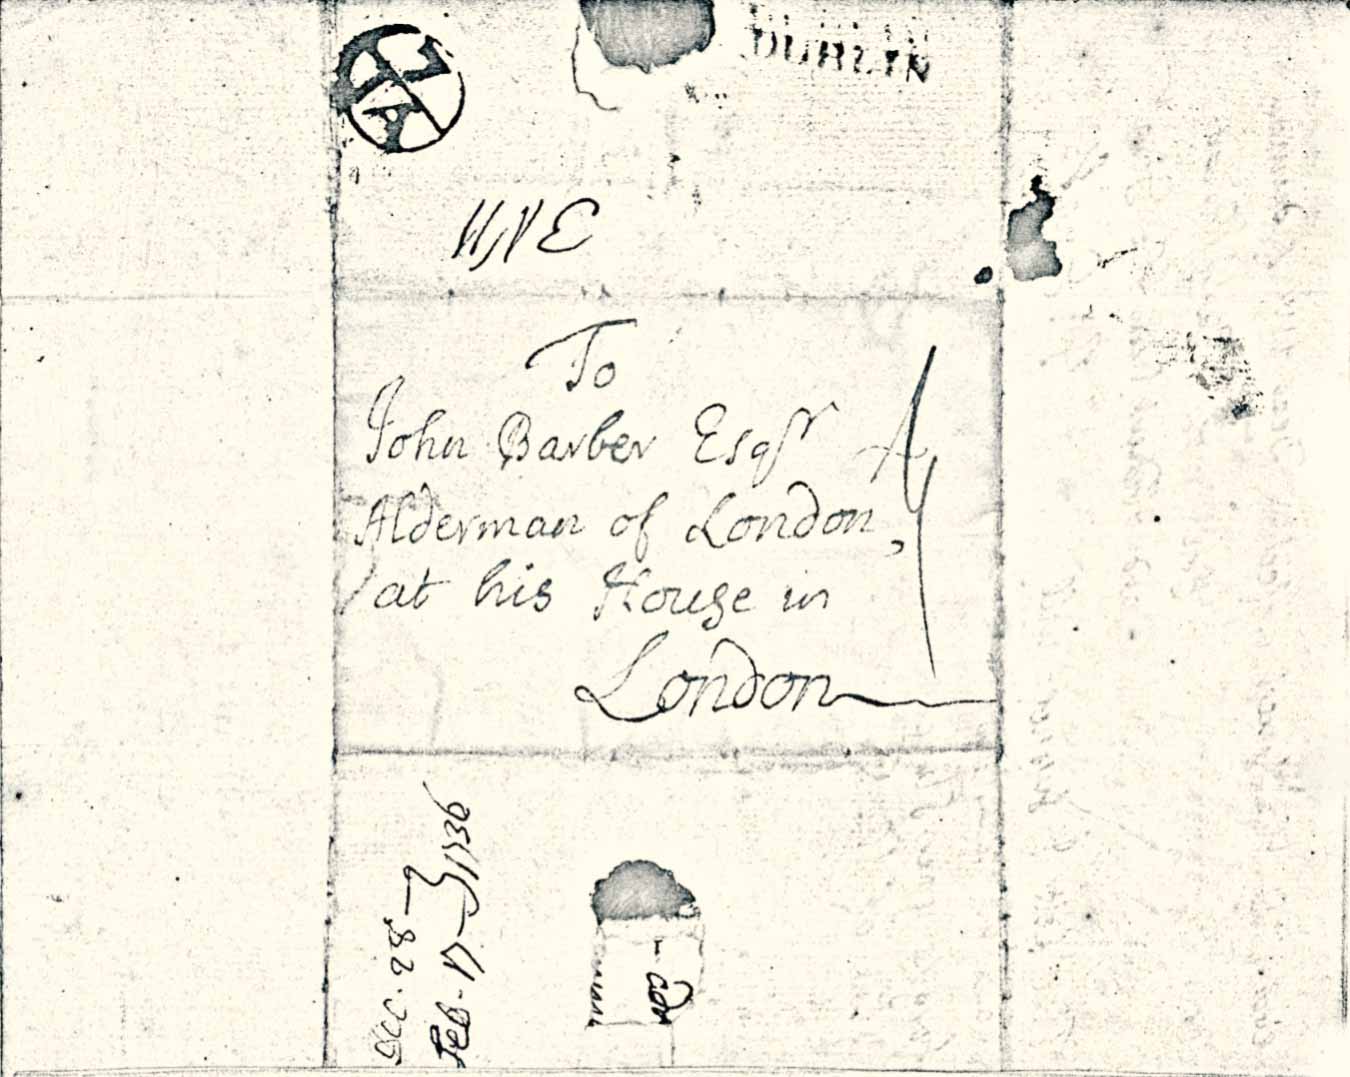 DUBLIN
To
John Barber Esqr
Alderman of London,
at his House in
London
Dec. 28
Feb. 17 1736